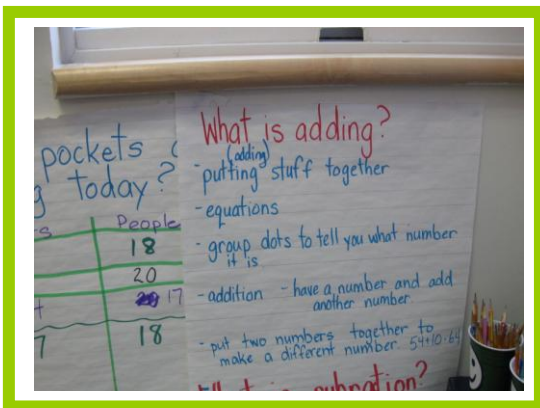 pockets
today?
People
18
20
17
18
What is adding?
(adding)
-putting stuff together
-equations
-group dots to tell you what number
it is
-addition -have a number and add
another number
-put two numbers together to
make a different number. 54+10=64